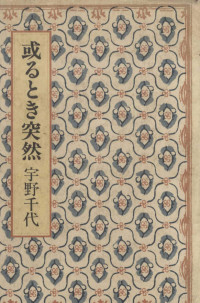 或るとき突然
宇野千代